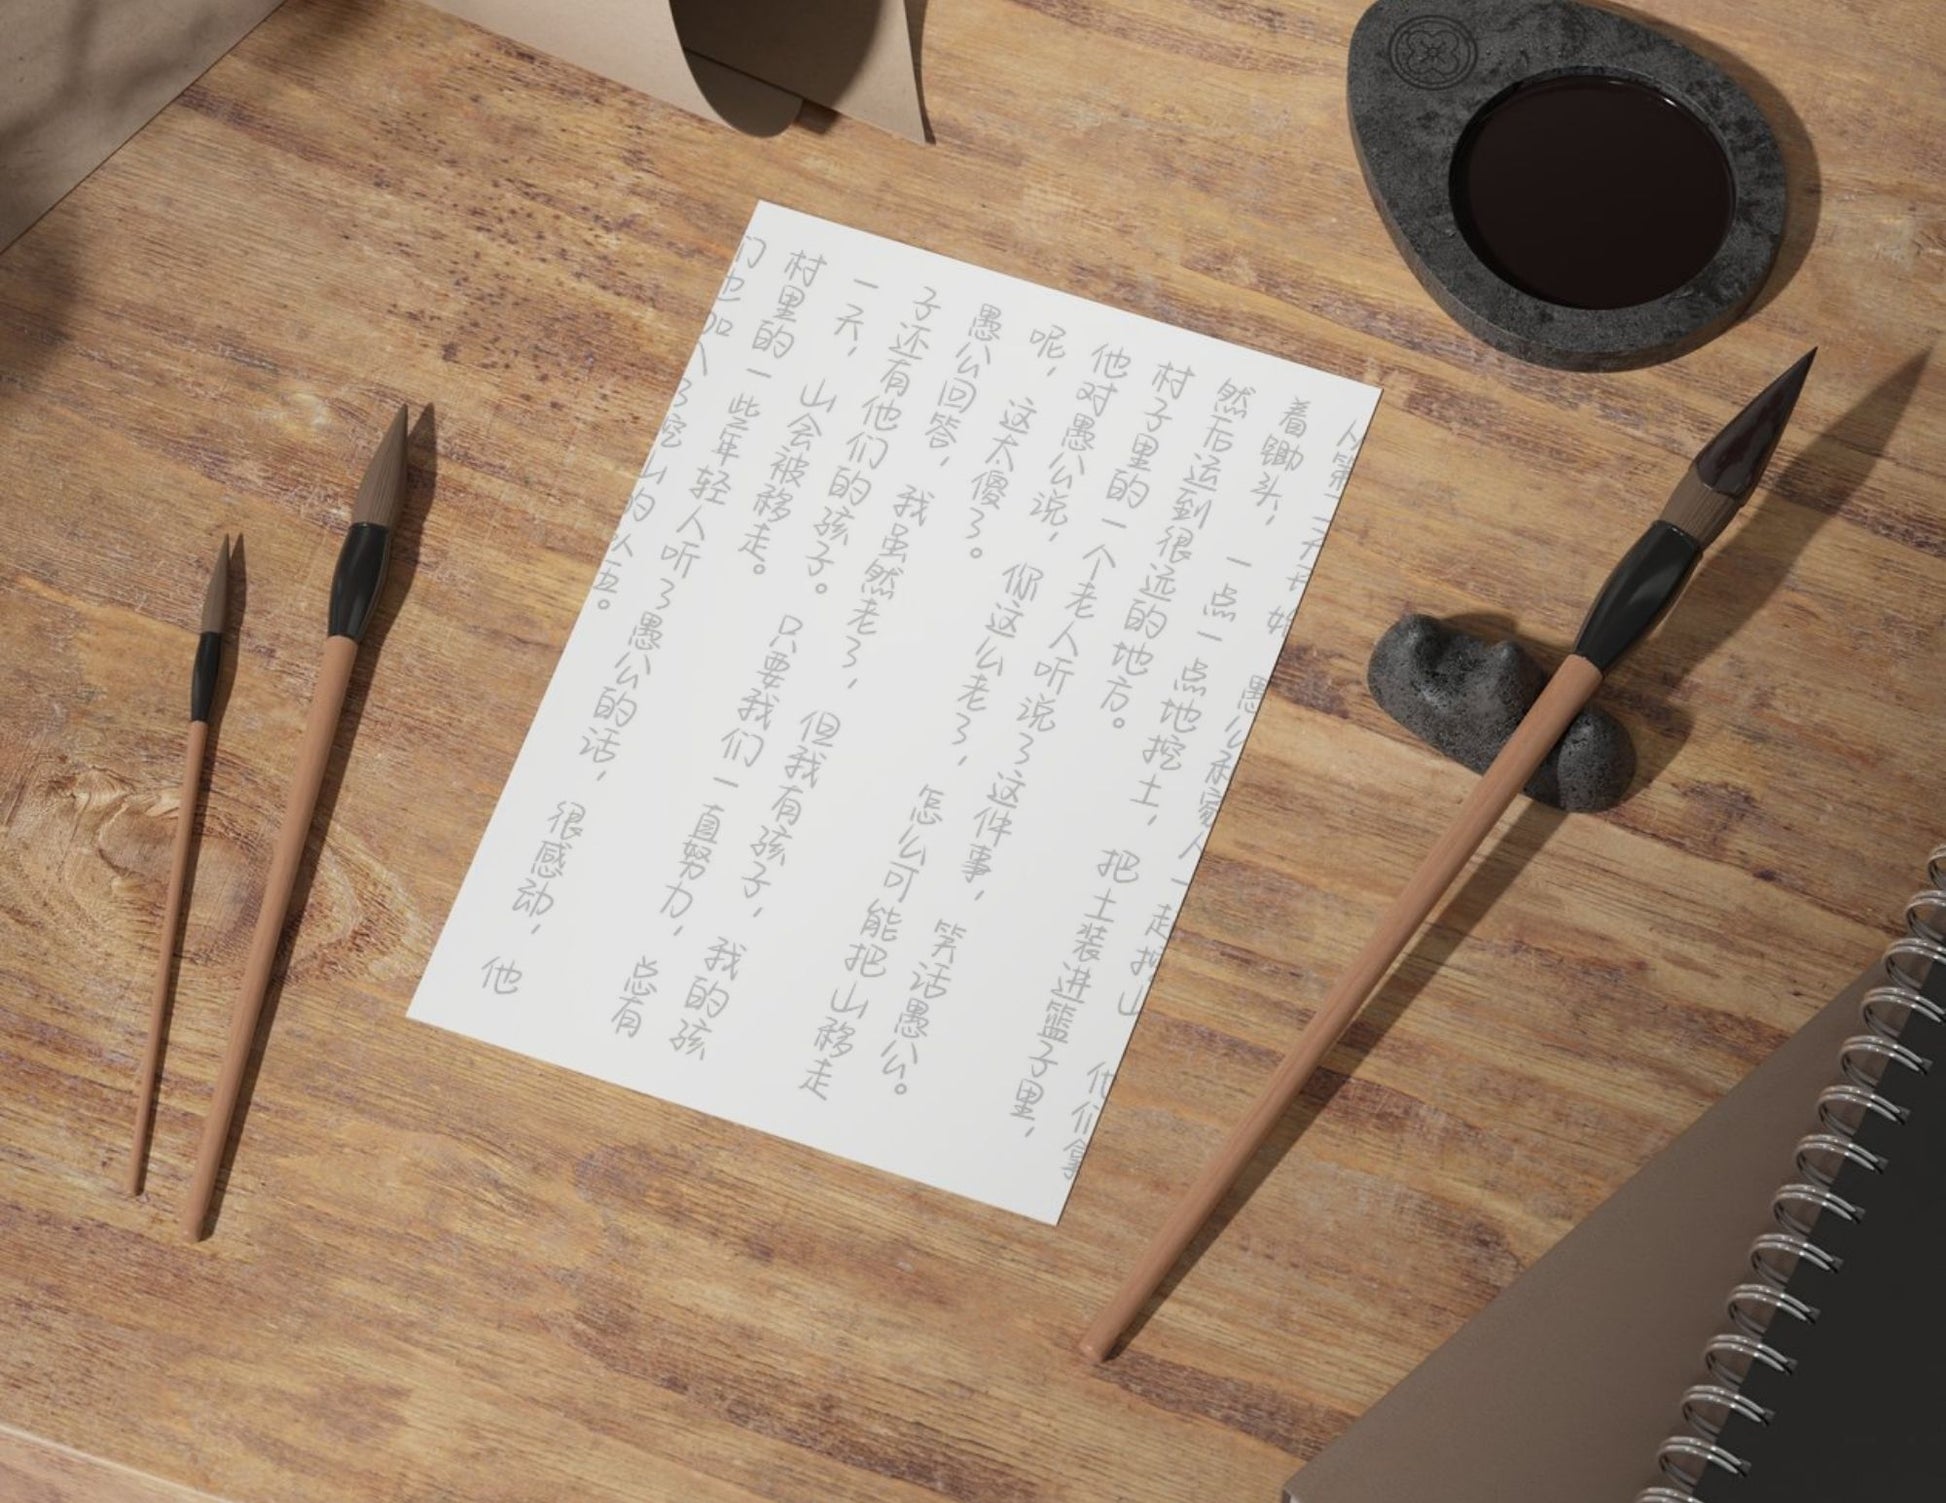 从第二天开始，愚公和家人一起挖山，他们拿
着锄头，一点一点地挖土，把土装进篮子里，
然后运到很远的地方。
村子里的一个老人听说了这件事，笑话愚公。
他对愚公说，你这么老了，怎么可能把山移走
呢，这太傻了。
愚公回答，我虽然老了，但我有孩子，我的孩
子还有他们的孩子。只要我们一直努力，总有
一天，山会被移走。
村里的一些年轻人听了愚公的话，很感动，他
们也加入了挖山的队伍。